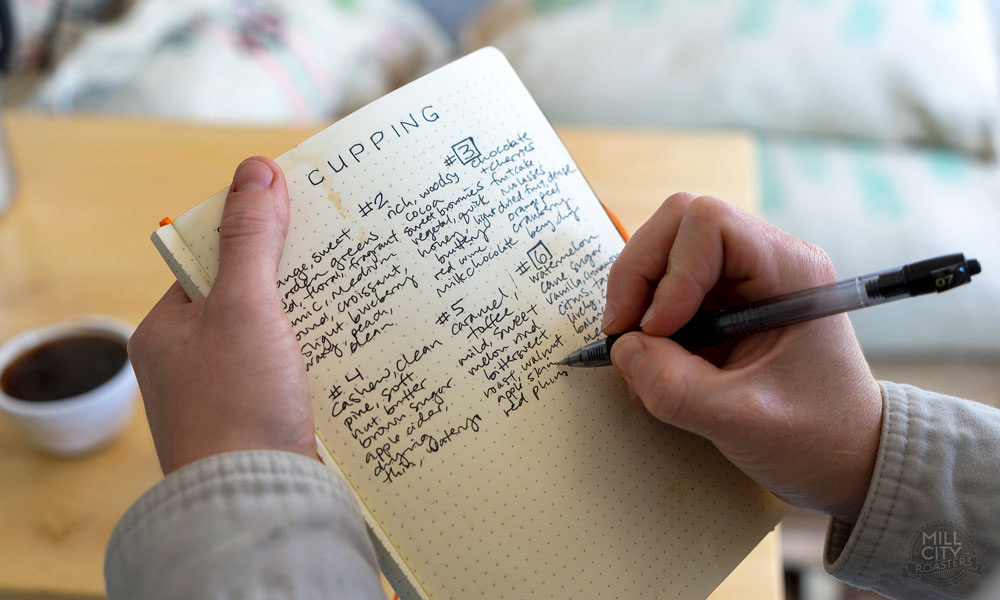 CUPPING
sweet
greens
floral, fragrant
medium
croissant,
blueberry
peach,
clean
#2
rich, woodsy
cocoa
sweet brownies
vegetal, quick
honey, light
buttery
red wine
milk chocolate
#3
chocolate
+ cherries
fruitcake
molasses
dried fruit, dense
orange peel
cranberry
berry, chip
#4
cashew, clean
pine, soft
nut butter
brown sugar
apple cider,
drying
thin, watery
#5
caramel,
toffee
mild, sweet
melon rind
bittersweet
roast, walnut
apple skin
red plum
#6
watermelon
cane sugar
vanilla, cinnamon
citrus,
07
MILL
CITY
ROASTERS